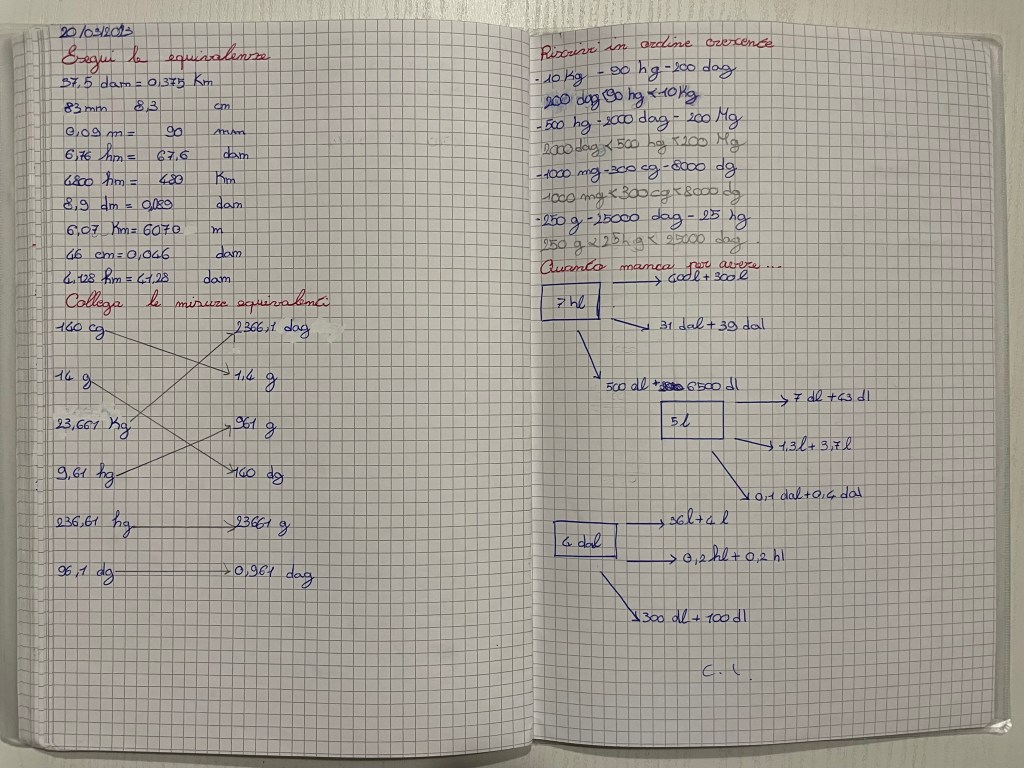 20/03/2023
Esegui le equivalenze
37,5 dam = 0,375 Km
83 mm 8,3 cm
0,09 m = 90 mm
6,76 hm = 67,6 dam
4800 hm = 480 Km
8,9 dm = 0,089 dam
6,07 Km = 6070 m
46 cm = 0,046 dam
4,128 hm = 41,28 dam
Collega le misure equivalenti
140 cg 2366,1 dag
14 g 1,4 g
23,661 Kg 961 g
9,61 hg 140 dg
236,61 hg 23661 g
96,1 dg 0,961 dag
Riscrivi in ordine crescente
- 10 Kg - 90 hg - 200 dag
200 dag < 90 hg < 10 Kg
- 500 hg - 2000 dag - 200 Mg
2000 dag < 500 hg < 200 Mg
- 1000 mg - 300 cg - 8000 dg
1000 mg < 300 cg < 8000 dg
- 250 g - 25000 dag - 25 hg
250 g < 25 hg < 25000 dag
Quanto manca per avere...
7 hl
400 l + 300 l
31 dal + 39 dal
500 dl + 6500 dl
5 l
7 dl + 43 dl
1,3 l + 3,7 l
0,1 dal + 0,4 dal
4 dal
36 l + 4 l
0,2 hl + 0,2 hl
300 dl + 100 dl